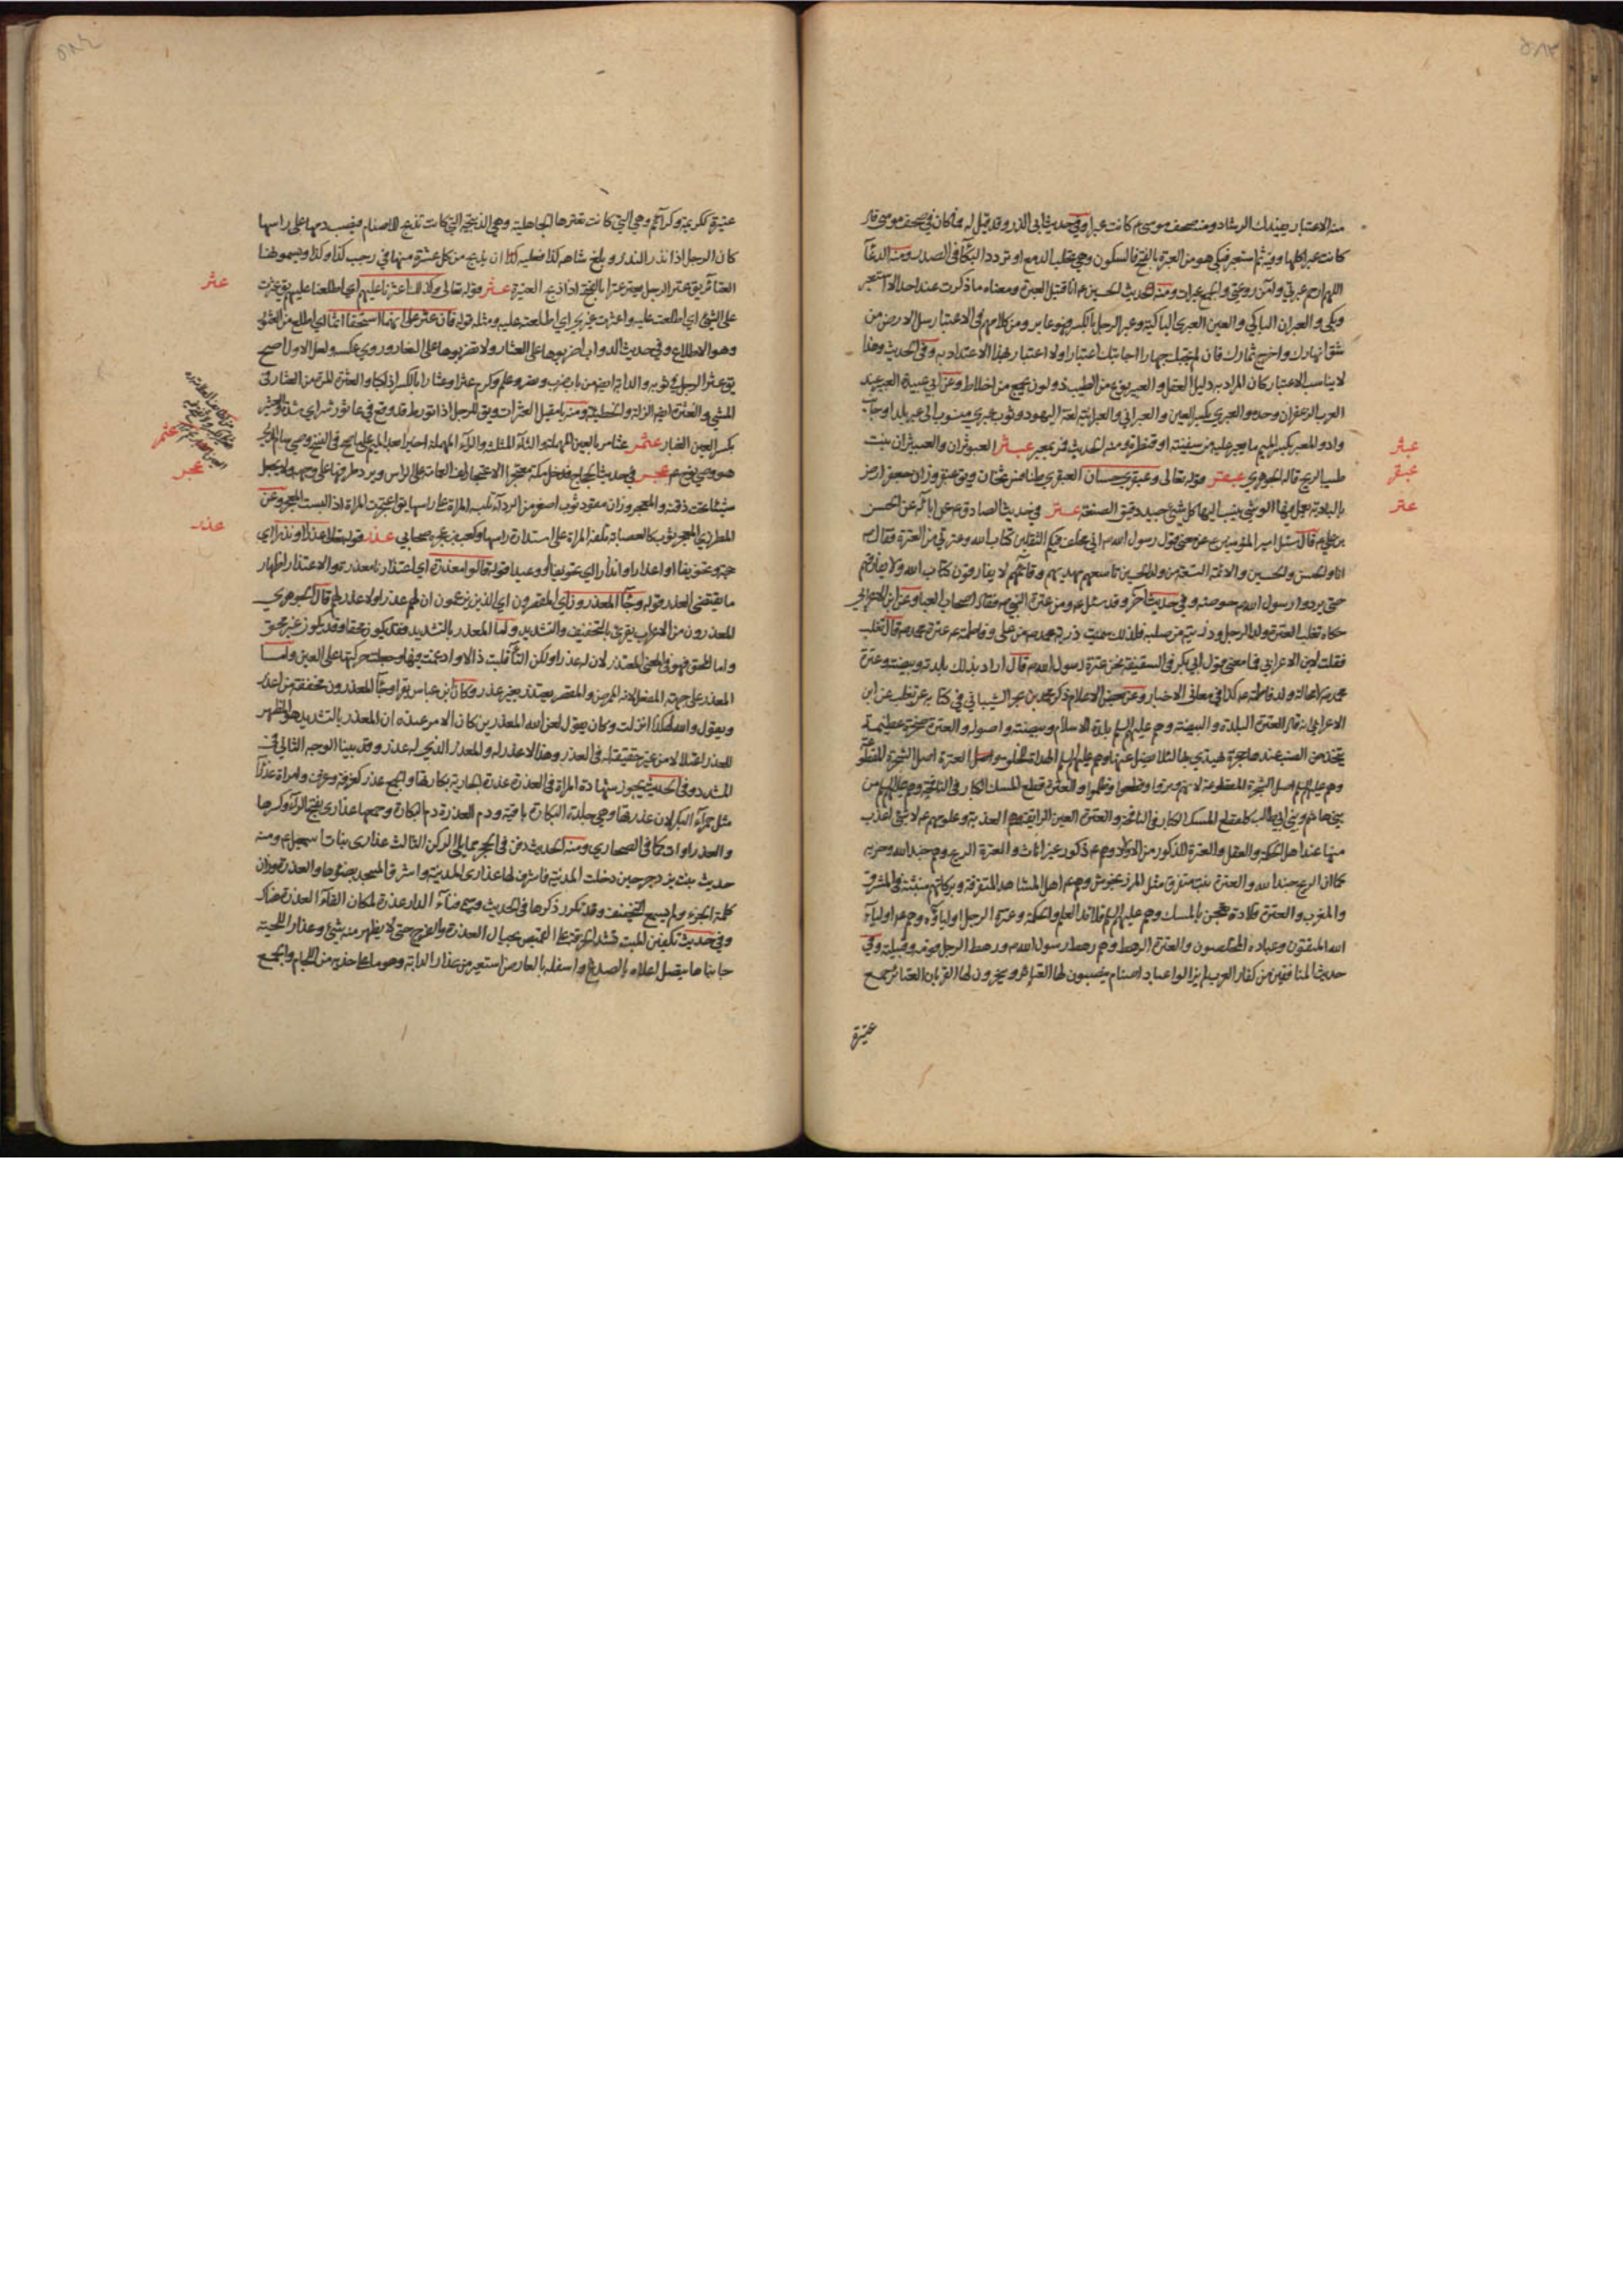 منه الاعتبار يفيدك الرشاد ومنه صحف موسى ع كانت عبرا وفي حديث ابي الذر وقد قيل له فما كان في صحف موسى قال
كانت عبرا كلها وفيه ثم استعبر فبكى هو من العبرة بالفتح فالسكون وهي تحلب الدمع او تردد البكاء في الصدر ومنه الدعاء
اللهم ارحم عبرتي وآمن روعتي والجمع عبرات ومنه الحديث الحسين ع انا قتيل العبرة ومعناه ما ذكرت عند احد الا استعبر
وبكى والعبران الباكي والعين العبرى الباكية وعبر الرجل بالكسر فهو عابر ومن كلامهم في الاعتبار سل الارض من
شق انهارك واخرج ثمارك فان لم تجبك جهارا اجابتك اعتبارا ولا اعتبار لهذا الاعتداد به وفي الحديث وهذا
لا يناسب الاعتبار كان المراد به دليل العقل والعبير نوع من الطيب ذو لون يجمع من اخلاط وعن ابي عبيدة العبير عند
العرب الزعفران وحده والعبري بكسر العين والعبراني والعبرانية لغة اليهود وثوب عبري منسوب الى عبر بلد او جانب
واد والمعبر بكسر الميم ما يعبر عليه من سفينة او قنطرة ومنه الحديث فمن يعبر عبثر العبوثران والعبيثران نبت
طيب الريح قاله الجوهري عبقر قوله تعالى وعبقري حسان العبقري طنافس ثخان ويق عبقر وزان جعفر ارض
بالبادية يعمل فيها الوشي ينسب اليها كل شيء جيد دقيق الصنعة عتر في حديث الصادق ع عن ابائه عن الحسن
بن علي ع قال سئل امير المؤمنين ع عن معنى قول رسول الله ص اني مخلف فيكم الثقلين كتاب الله وعترتي من العترة فقال ع
انا والحسن والحسين والائمة التسعة من ولد الحسين تاسعهم مهديهم وقائمهم لا يفارقون كتاب الله ولا يفارقهم
حتى يردوا رسول الله ص حوضه وفي حديث آخر وقد سئل ع ومن عترة النبي ص فقال اصحاب العبا وعن ابن الاعرابي
حكاه تغلب العترة ولد الرجل وذريته من صلبه فلذلك سميت ذرية محمد ص من علي وفاطمة ع عترة محمد ص قال تغلب
فقلت لابن الاعرابي فما معنى قول ابي بكر في السقيفة نحن عترة رسول الله ص قال اراد بذلك بلدته وبيضته وعترة
محمد ص لا محالة ولد فاطمة ع كذا في معاني الاخبار وعن بعض الاعلام ذكر محمد بن بحر الشيباني في كتابه عن تغلب عن ابن
الاعرابي انه قال العترة البلدة والبيضة وهم عليهم السلام بلدة الاسلام وبيضته واصوله والعترة صخرة عظيمة
يتخذ من الضب عندها جحره يهتدي بها لئلا يضل عنها وهم عليهم السلم الهداة للخلق واصل العترة اصل الشجرة المقطوعة
وهم عليهم السلم اصل الشجرة المقطوعة لانهم وتروا وقطعوا وظلموا والعترة قطع المسك الكبار في النافجة وهم عليهم السلم من
بني هاشم وبني ابي طالب كقطع المسك الكبار في النافجة والعترة العين الزايقة العذبة وعلومهم ع لا شيء اعذب
منها عند اهل الحكمة والعقل والعترة الذكور من الاولاد وهم ع ذكور غير اناث والعترة الريح وهم جند الله وحزبه
كما ان الريح جند الله والعترة نبت متفرق مثل المرزنجوش وهم ع اهل المشاهد المتفرقة وبركاتهم منبثة في المشرق
والمغرب والعترة قلادة تعجن بالمسك وهم عليهم السلم قلائد العلم والحكمة وعترة الرجل اولياؤه وهم ع اولياء
الله المتقون وعباده المخلصون والعترة الرهط وهم رهط رسول الله ص ورهط الرجل قومه وقبيلته وفي
حديث المنافقين من كفار العرب لم يزالوا عباد اصنام ينصبون لها العتائر وينحرون لها القربان العتائر جمع
عتيرة
عبثر
عبقر
عتر
عتيرة ككريمة وكرائم وهي التي كانت تعترها الجاهلية وهي الذبيحة التي كانت تذبح للاصنام فيصب دمها على راسها
كان الرجل اذا نذر النذر وبلغ شاءه كذا فعليه ان يذبح من كل عشرة منها في رجب كذا وكذا ويسمونها
العتائر يق عتر الرجل يعتر عترا بالفتح اذا ذبح العتيرة عثر قوله تعالى وكذلك اعثرنا عليهم اي اطلعنا عليهم يق عثرت
على الشيء اي اطلعت عليه واعثرت غيري اي اطلعته عليه ومثله قوله فان عثر على انهما استحقا اثما اي اطلع من العثور
وهو الاطلاع وفي حديث الدواب اضربوها على العثار ولا تضربوها على النفار وروي عكسه ولعل الاول اصح
يق عثر الرجل في ثوبه والدابة ايضا من باب ضرب ونصر وعلم وكرم عثرا وعثارا بالكسر اذا كبا والعثرة المرة من العثار في
المشي والعثرة ايضا الزلة والخطيئة ومنه يا مقيل العثرات ويق للرجل اذا تورط قد وقع في عاثور شر اي شدة والعثير
بكسر العين الغبار عثمر عثامر بالعين المهملة والثاء المثلثة والراء المهملة اخيرا بعد الميم
هو وصي عجر في حديث الحاج فدخل مكة معتجرا الاعتجار لف العمامة على الراس ويرد طرفها على وجهه ولا يجعل
شيئا تحت ذقنه والمعجر وزان مقود ثوب اصغر من الرداء تلبسه المراة على راسها يق اعتجرت المراة اذا لبست المعجر وعن
المطرزي المعجر ثوب كالعصابة تلفه المراة على استدارة راسها وكعب بن عجرة صحابي عذر قوله تعالى عذرا او نذرا اي
حجة وتخويفا او اعذارا وانذارا اي تخويفا او وعيدا قوله قالوا معذرة اي اعتذارنا معذرة والاعتذار اظهار
ما يقتضي العذر قوله وجاء المعذرون اي المقصرون اي الذين يزعمون ان لهم عذرا ولا عذر لهم قال الجوهري
المعذرون من الاعراب يقرئ بالتخفيف والتشديد واما المعذر بالتشديد فقد يكون محقا وقد يكون غير محق
واما المحق فهو في المعنى المعتذر لان له عذرا ولكن التاء قلبت ذالا وادغمت فيها وجعلت حركتها على العين واما
المعذر على جهة المفعل لانه الممرض والمقصر يعتذر بغير عذر وكان ابن عباس يقرا وجاء المعذرون مخففة من اعذر
ويقول والله لهكذا انزلت وكان يقول لعن الله المعذرين كان الامر عنده ان المعذر بالتشديد هو المظهر
للعذر اعتلالا من غير حقيقة له في العذر وهذا لا عذر له والمعذر الذي له عذر وقد بينا الوجه الثاني في
المشدد وفي الحديث يجوز شهادة المراة في العذرة عذرة الجارية بكارتها والجمع عذر كغرفة وغرف وامراة عذراء
مثل حمراء البكر لان عذرتها وهي جلدة البكارة باقية ودم العذرة دم البكارة وجمعها عذارى بفتح الراء وكسرها
والعذراوات كما في الصحاري ومنه الحديث دفن في الحجر مما يلي الركن الثالث عذارى بنات اسمعيل ع ومنه
حديث بنت يزدجرد حين دخلت المدينة فاشرف لها عذارى المدينة واشرق المسجد بضوئها والعذرة وزان
كلمة الخرء ولم يسمع التخفيف وقد تكرر ذكرها في الحديث وسمي فناء الدار عذرة لمكان القاء العذرة هناك
وفي حديث تكفين الميت تشد الخرقة على القميص بحيال العذرة والفرج حتى لا يظهر منه شيء وعذار اللحية
جانباها يتصل اعلاه بالصدغ واسفله بالعارض استعير من عذار الدابة وهو ما على خديه من اللجام والجمع
عثر
عثمر
عجر
عذر